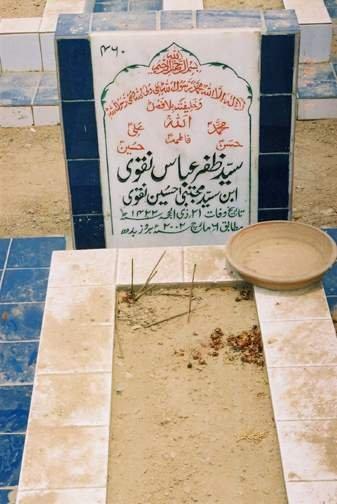 ۴۶۰
بسم اللہ الرحمن الرحیم
لا الہ الا اللہ محمد رسول اللہ علی ولی اللہ وصی رسول اللہ
وخلیفتہ بلا فصل
اللہ
محمدؐ علیؑ
فاطمہؑ
حسنؑ حسینؑ
سیّد ظفر عباس نقوی
ابن سیّد مجتبیٰ حسین نقوی
تاریخ وفات ۲۱ ذی الحجہ ۱۴۲۲ھ
مطابق ۶ مارچ ۲۰۰۲ء بروز بدھ